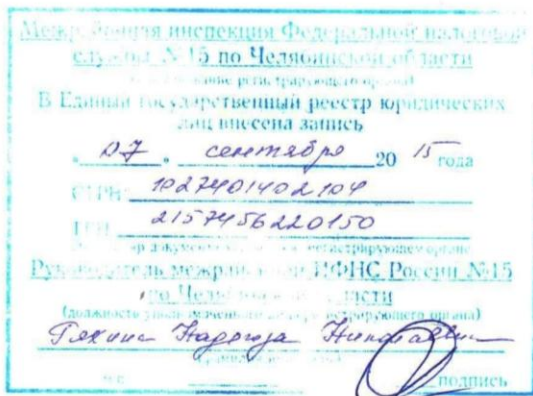 Межрайонная инспекция Федеральной налоговой
службы №15 по Челябинской области
регистрирующего органа)
В Единый государственный реестр юридических
лиц внесена запись
" 07 " сентября 20 15 года
ОГРН 1027401402104
ГРН 2157456220150
регистрирующем органе
Руководитель межрайонной ИФНС России №15
по Челябинской области
(должность регистрирующего органа)
Надежда Николаевна
подпись